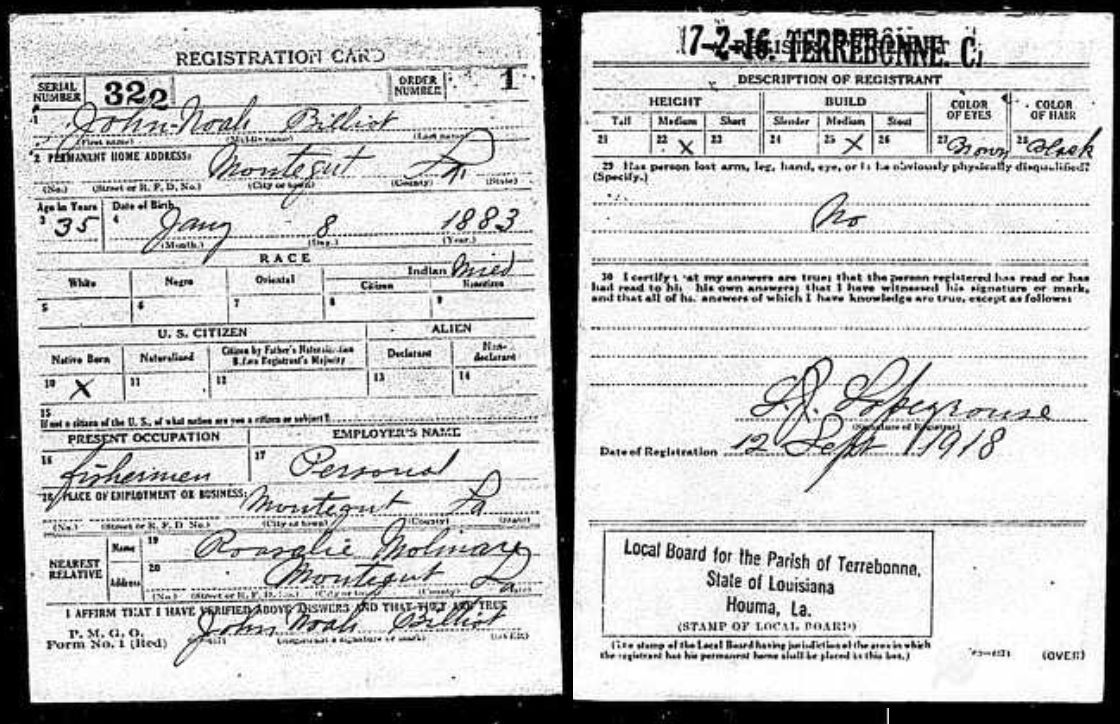 REGISTRATION CARD
SERIAL NUMBER 322 ORDER NUMBER 1
1 John Noah Billiot
(First name) (Middle name) (Last name)
2 PERMANENT HOME ADDRESS:
Montegut La.
(No.) (Street or R. F. D. No.) (City or town) (County) (State)
Age in Years Date of Birth
3 35 4 Jany 8 1883
(Month.) (Day.) (Year.)
RACE
White Negro Oriental Indian Mixed
Citizen Noncitizen
5 6 7 8 9
U. S. CITIZEN ALIEN
Native Born Naturalized Citizen by Father's Naturalization Before Registrant's Majority Declarant Non-declarant
10 X 11 12 13 14
15
If not a citizen of the U. S., of what nation are you a citizen or subject?
PRESENT OCCUPATION EMPLOYER'S NAME
16 fishermen 17 Personal
18 PLACE OF EMPLOYMENT OR BUSINESS:
Montegut La
(No.) (Street or R. F. D. No.) (City or town) (County) (State)
NEAREST RELATIVE Name 19 Rosalie Molinare
Address 20 Montegut La
(No.) (Street or R. F. D. No.) (City or town) (County) (State)
I AFFIRM THAT I HAVE VERIFIED ABOVE ANSWERS AND THAT THEY ARE TRUE
P. M. G. O.
Form No. 1 (Red) John Noah Billiot
(Registrant's signature or mark) (OVER)
17-2-16. TERREBONNE. C,
DESCRIPTION OF REGISTRANT
HEIGHT BUILD COLOR OF EYES COLOR OF HAIR
Tall Medium Short Slender Medium Stout
21 22 X 23 24 25 X 26 27 Brown 28 Black
29 Has person lost arm, leg, hand, eye, or is he obviously physically disqualified?
(Specify.)
No
30 I certify that my answers are true; that the person registered has read or has
had read to him his own answers; that I have witnessed his signature or mark,
and that all of his answers of which I have knowledge are true, except as follows:
(Signature of Registrar)
Date of Registration 12 Sept 1918
Local Board for the Parish of Terrebonne,
State of Louisiana
Houma, La.
(STAMP OF LOCAL BOARD)
(The stamp of the Local Board having jurisdiction of the area in which
the registrant has his permanent home shall be placed in this box.)
(OVER)